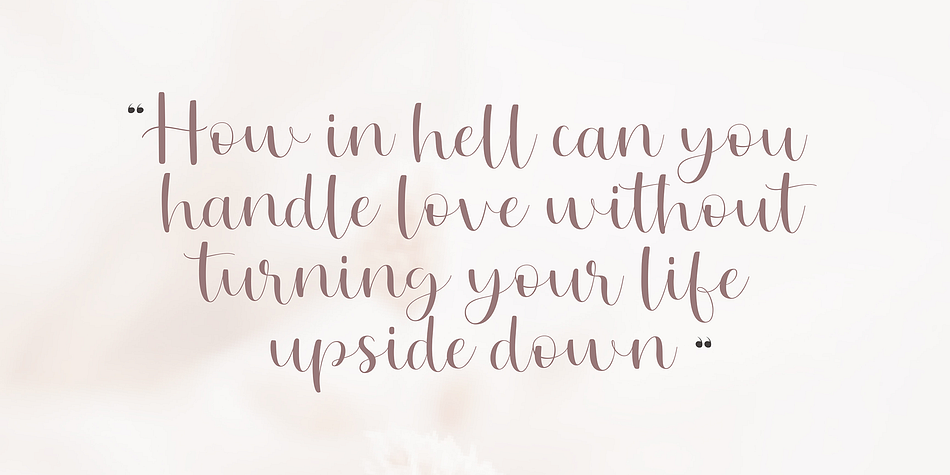 “How in hell can you
handle love without
turning your life
upside down “